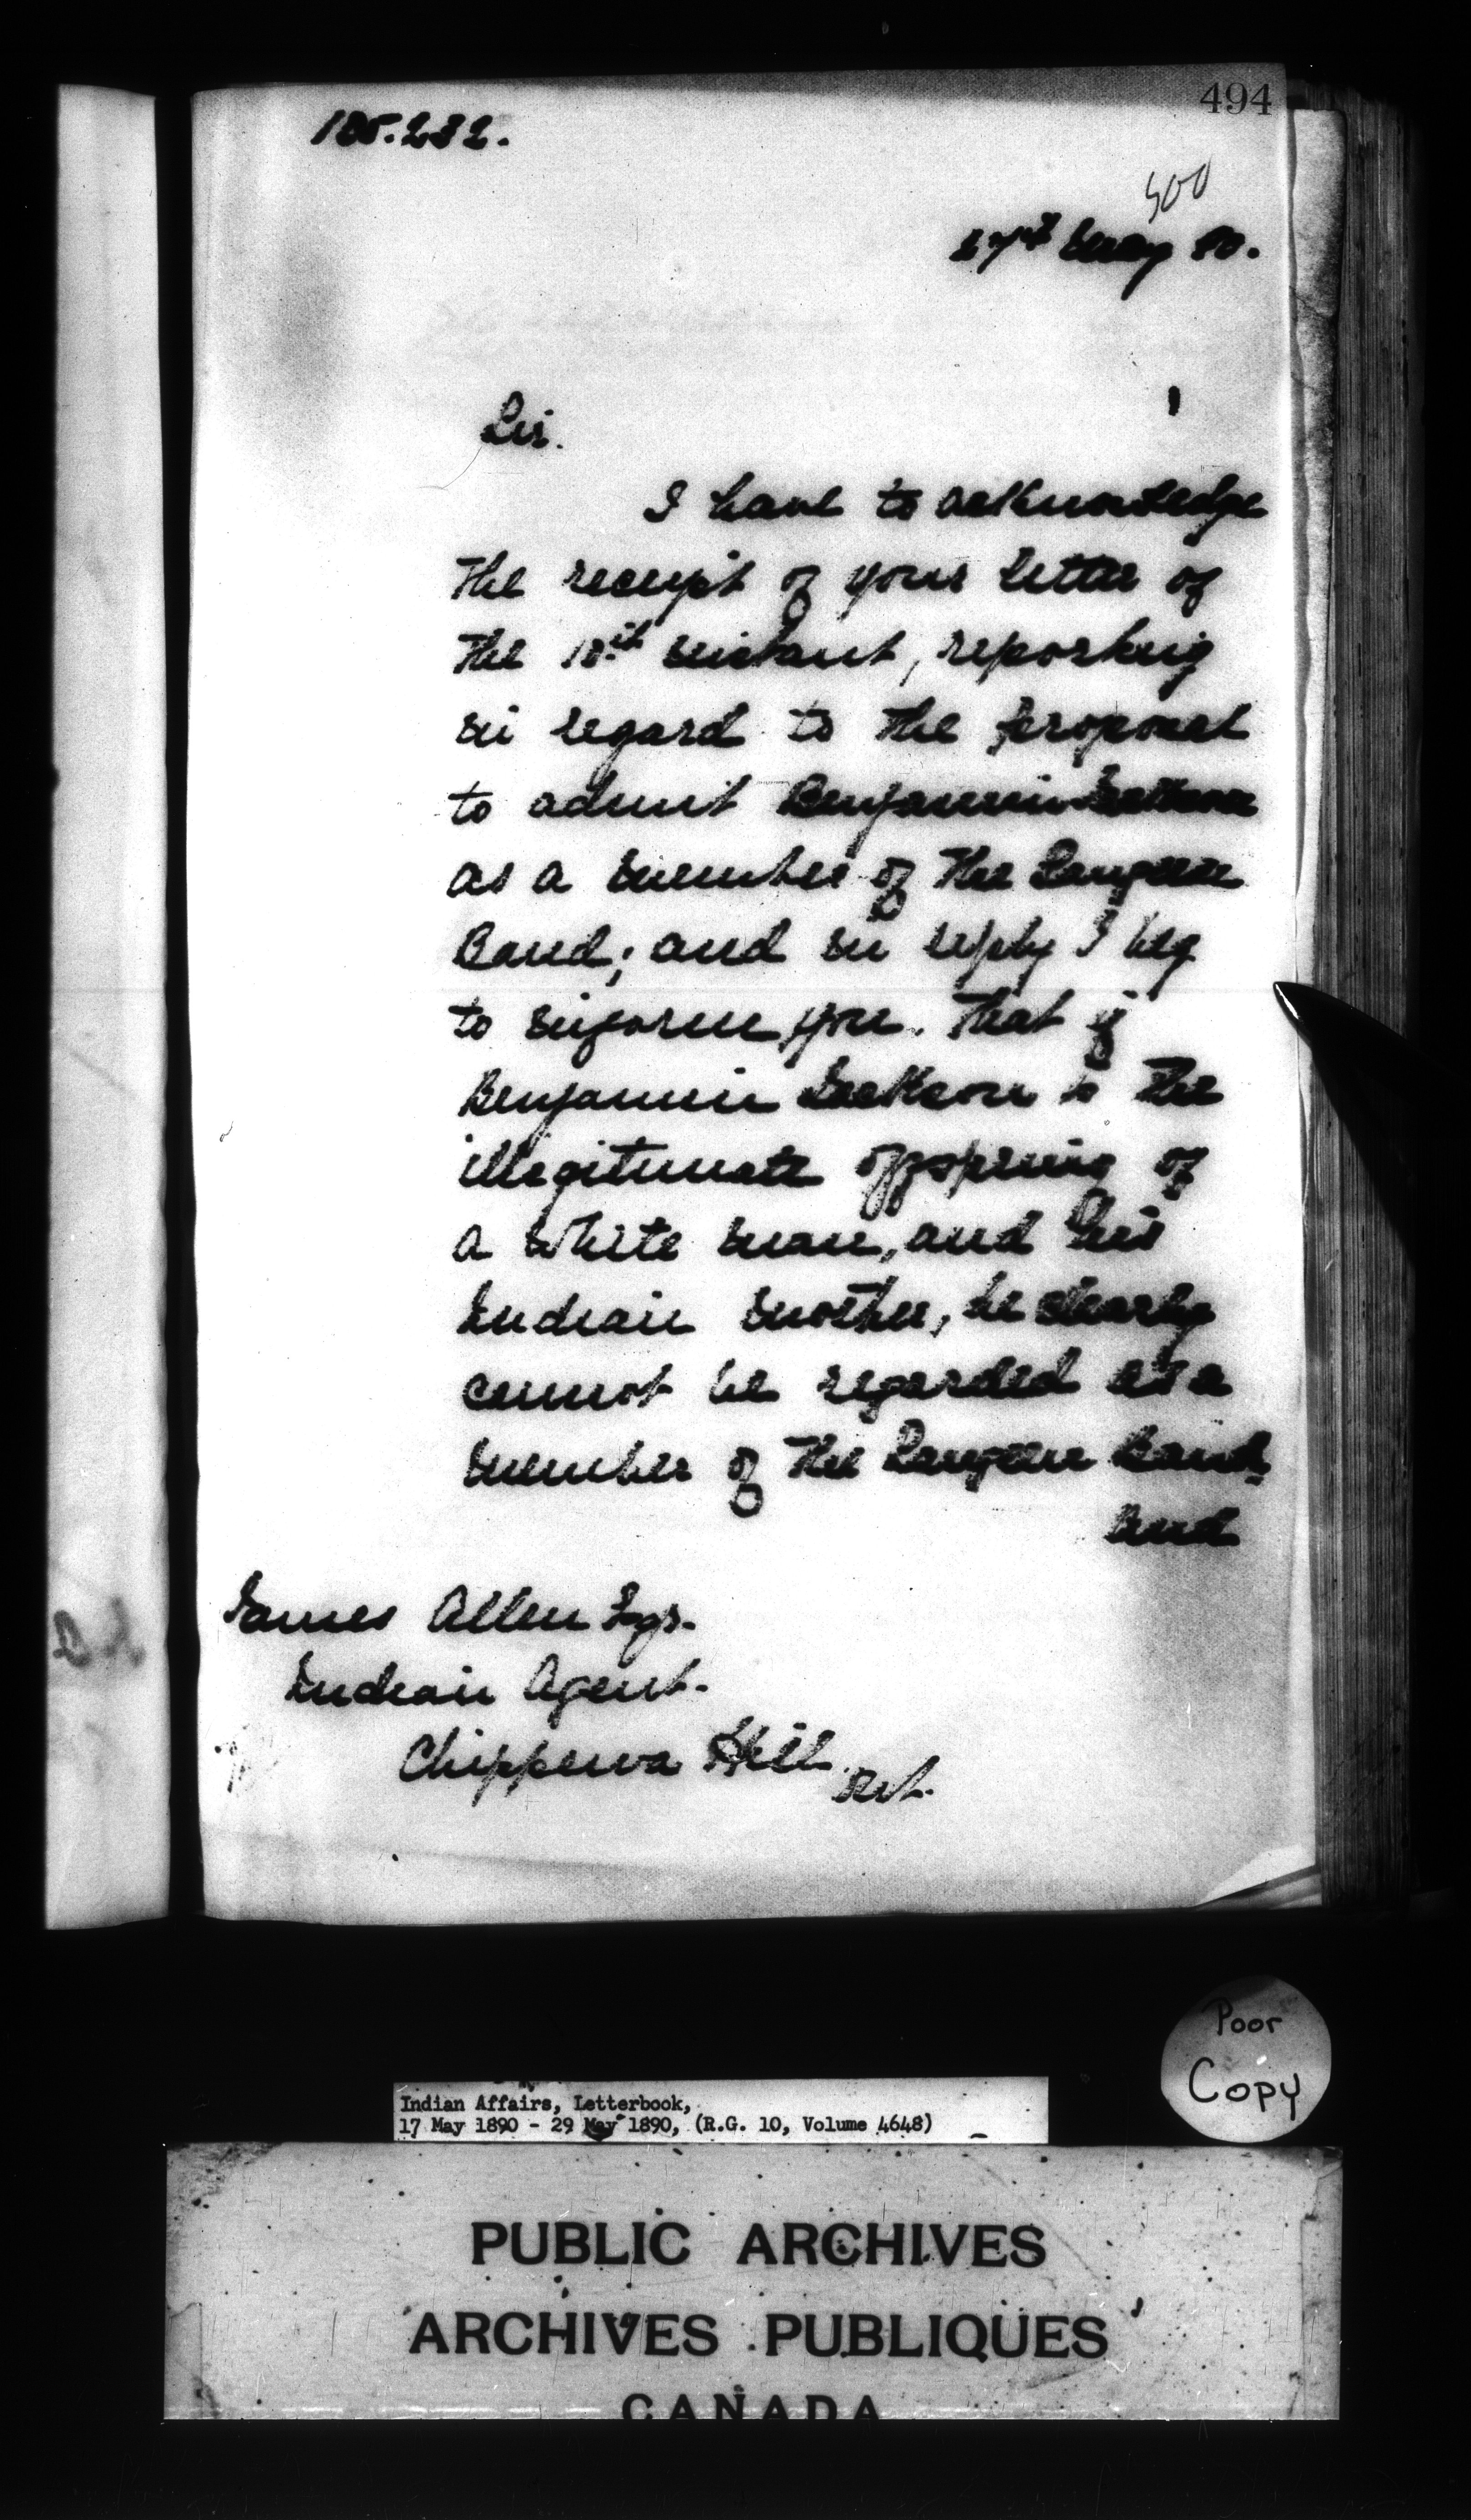 494
105.232.
500
27th May 90.
Sir.
I have to acknowledge
the receipt of your letter of
the 18th instant, reporting
in regard to the proposal
to admit Benjamin Jackson
as a member of the Saugeen
Band; and in reply I beg
to inform you. that if
Benjamin Jackson is the
illegitimate offspring of
a White man, and his
Indian mother, he clearly
cannot be regarded as a
member of the Saugeen Band,
and
James Allen Esqr.
Indian Agent.
Chippewa Hill.
Ont.
Poor
Copy
Indian Affairs, Letterbook,
17 May 1890 - 29 May 1890, (R.G. 10, Volume 4648)
PUBLIC ARCHIVES
ARCHIVES PUBLIQUES
CANADA